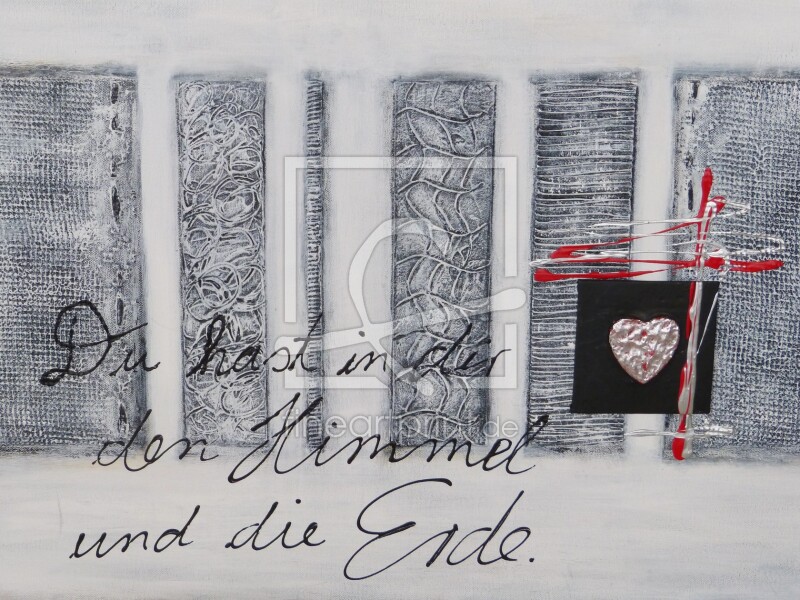 Du hast in dir
den Himmel
und die Erde.
fineartprint.de